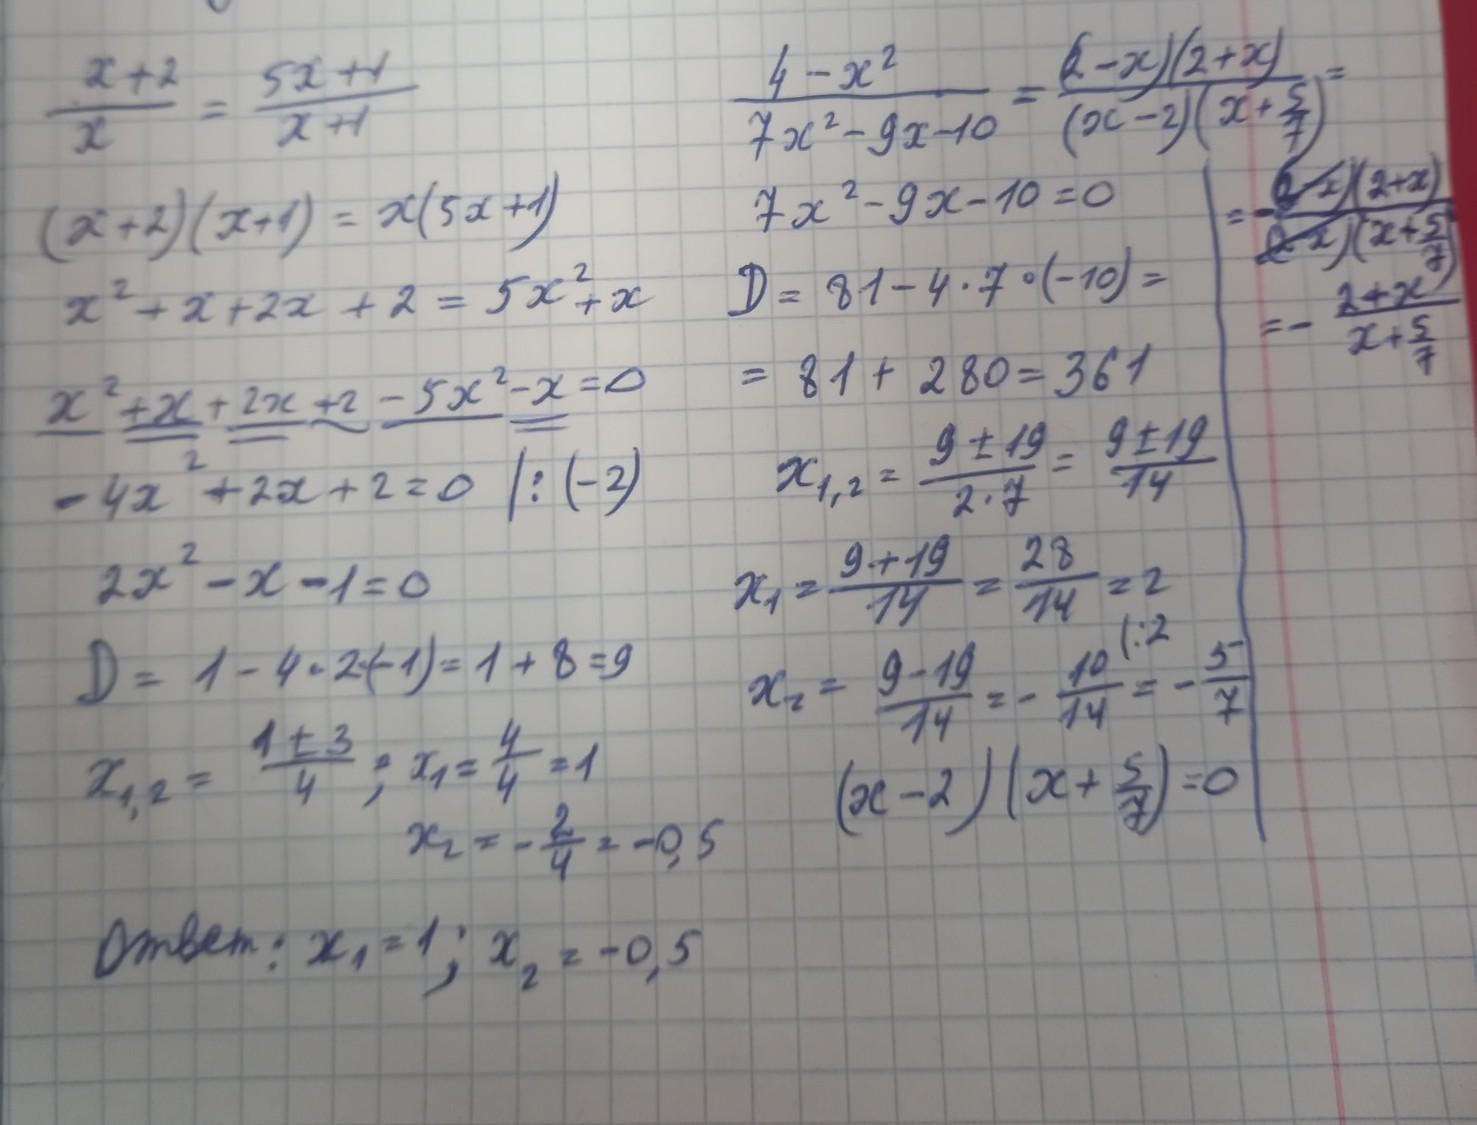 (x+2)/x = (5x+1)/(x+1)
(x+2)(x+1) = x(5x+1)
x² + x + 2x + 2 = 5x² + x
x² + x + 2x + 2 - 5x² - x = 0
-4x² + 2x + 2 = 0 |:(-2)
2x² - x - 1 = 0
D = 1 - 4·2·(-1) = 1 + 8 = 9
x₁,₂ = (1±3)/4 ; x₁ = 4/4 = 1
x₂ = -2/4 = -0,5
Ответ: x₁ = 1; x₂ = -0,5
(4 - x²)/(7x² - 9x - 10) = (2-x)(2+x)/((x-2)(x+5/7)) =
7x² - 9x - 10 = 0
D = 81 - 4·7·(-10) =
= 81 + 280 = 361
x₁,₂ = (9±19)/(2·7) = (9±19)/14
x₁ = (9+19)/14 = 28/14 = 2
x₂ = (9-19)/14 = -10/14 (:2 = -5/7
(x-2)(x+5/7) = 0
= -(2-x)(2+x)/((2-x)(x+5/7))
= -(2+x)/(x+5/7)